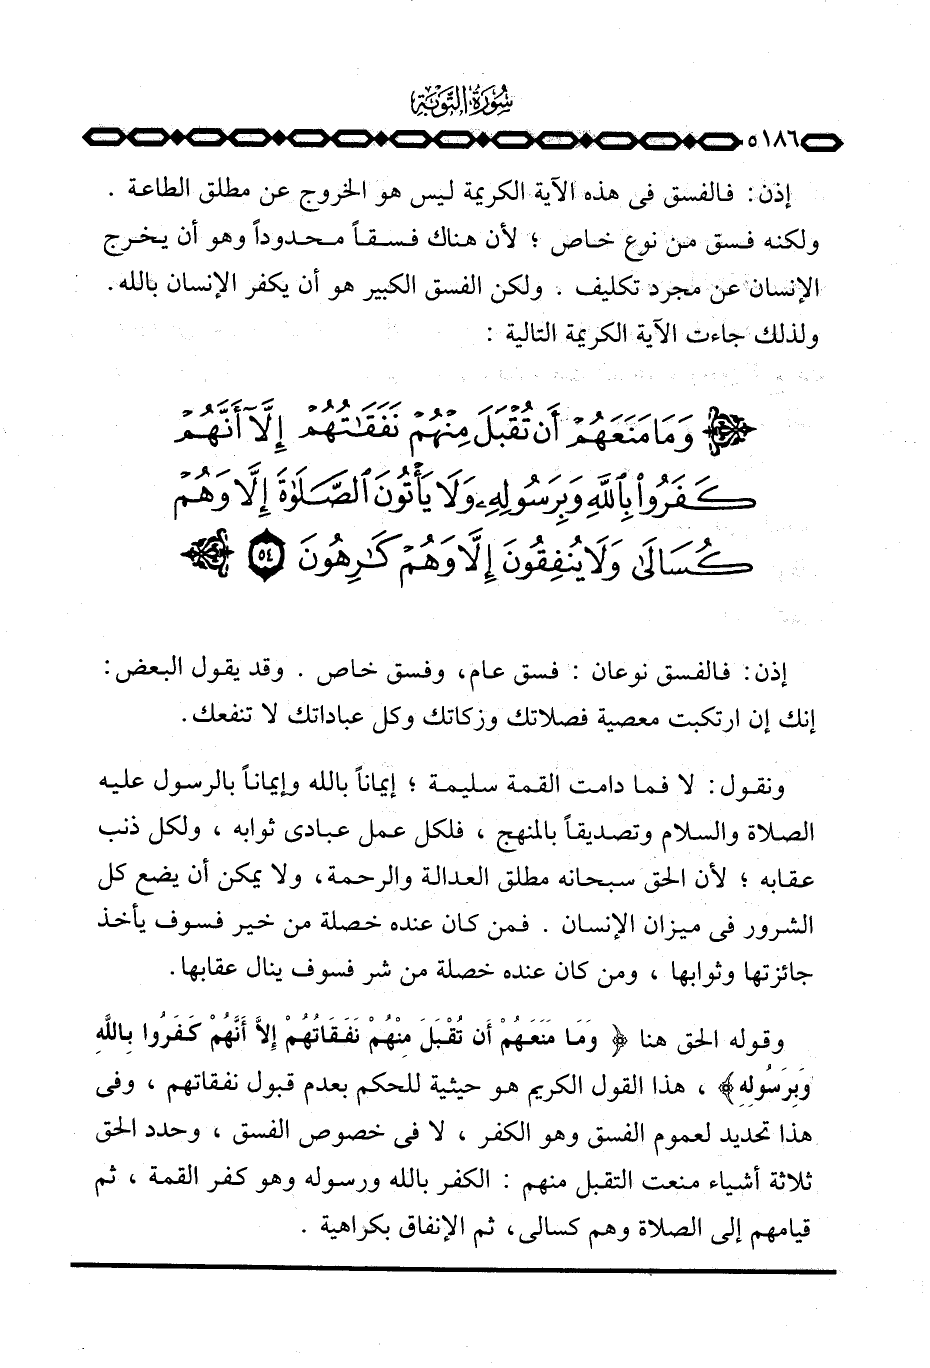 سُورَةُ التَّوْبَة
٥١٨٦
إذن : فالفسق فى هذه الآية الكريمة ليس هو الخروج عن مطلق الطاعة .
ولكنه فسق من نوع خاص ؛ لأن هناك فسقاً محدوداً وهو أن يخرج
الإنسان عن مجرد تكليف . ولكن الفسق الكبير هو أن يكفر الإنسان بالله .
ولذلك جاءت الآية الكريمة التالية :
وَمَا مَنَعَهُمْ أَن تُقْبَلَ مِنْهُمْ نَفَقَٰتُهُمْ إِلَّآ أَنَّهُمْ
كَفَرُوا۟ بِٱللَّهِ وَبِرَسُولِهِۦ وَلَا يَأْتُونَ ٱلصَّلَوٰةَ إِلَّا وَهُمْ
كُسَالَىٰ وَلَا يُنفِقُونَ إِلَّا وَهُمْ كَٰرِهُونَ ٥٤
إذن : فالفسق نوعان : فسق عام ، وفسق خاص . وقد يقول البعض :
إنك إن ارتكبت معصية فصلاتك وزكاتك وكل عباداتك لا تنفعك .
ونقول : لا فما دامت القمة سليمة ؛ إيماناً بالله وإيماناً بالرسول عليه
الصلاة والسلام وتصديقاً بالمنهج ، فلكل عمل عبادى ثوابه ، ولكل ذنب
عقابه ؛ لأن الحق سبحانه مطلق العدالة والرحمة ، ولا يمكن أن يضع كل
الشرور فى ميزان الإنسان . فمن كان عنده خصلة من خير فسوف يأخذ
جائزتها وثوابها ، ومن كان عنده خصلة من شر فسوف ينال عقابها .
وقوله الحق هنا ﴿ وَمَا مَنَعَهُمْ أَن تُقْبَلَ مِنْهُمْ نَفَقَاتُهُمْ إِلاَّ أَنَّهُمْ كَفَرُوا بِاللَّهِ
وَبِرَسُولِهِ ﴾ ، هذا القول الكريم هو حيثية للحكم بعدم قبول نفقاتهم ، وفى
هذا تحديد لعموم الفسق وهو الكفر ، لا فى خصوص الفسق ، وحدد الحق
ثلاثة أشياء منعت التقبل منهم : الكفر بالله ورسوله وهو كفر القمة ، ثم
قيامهم إلى الصلاة وهم كسالى ، ثم الإنفاق بكراهية .